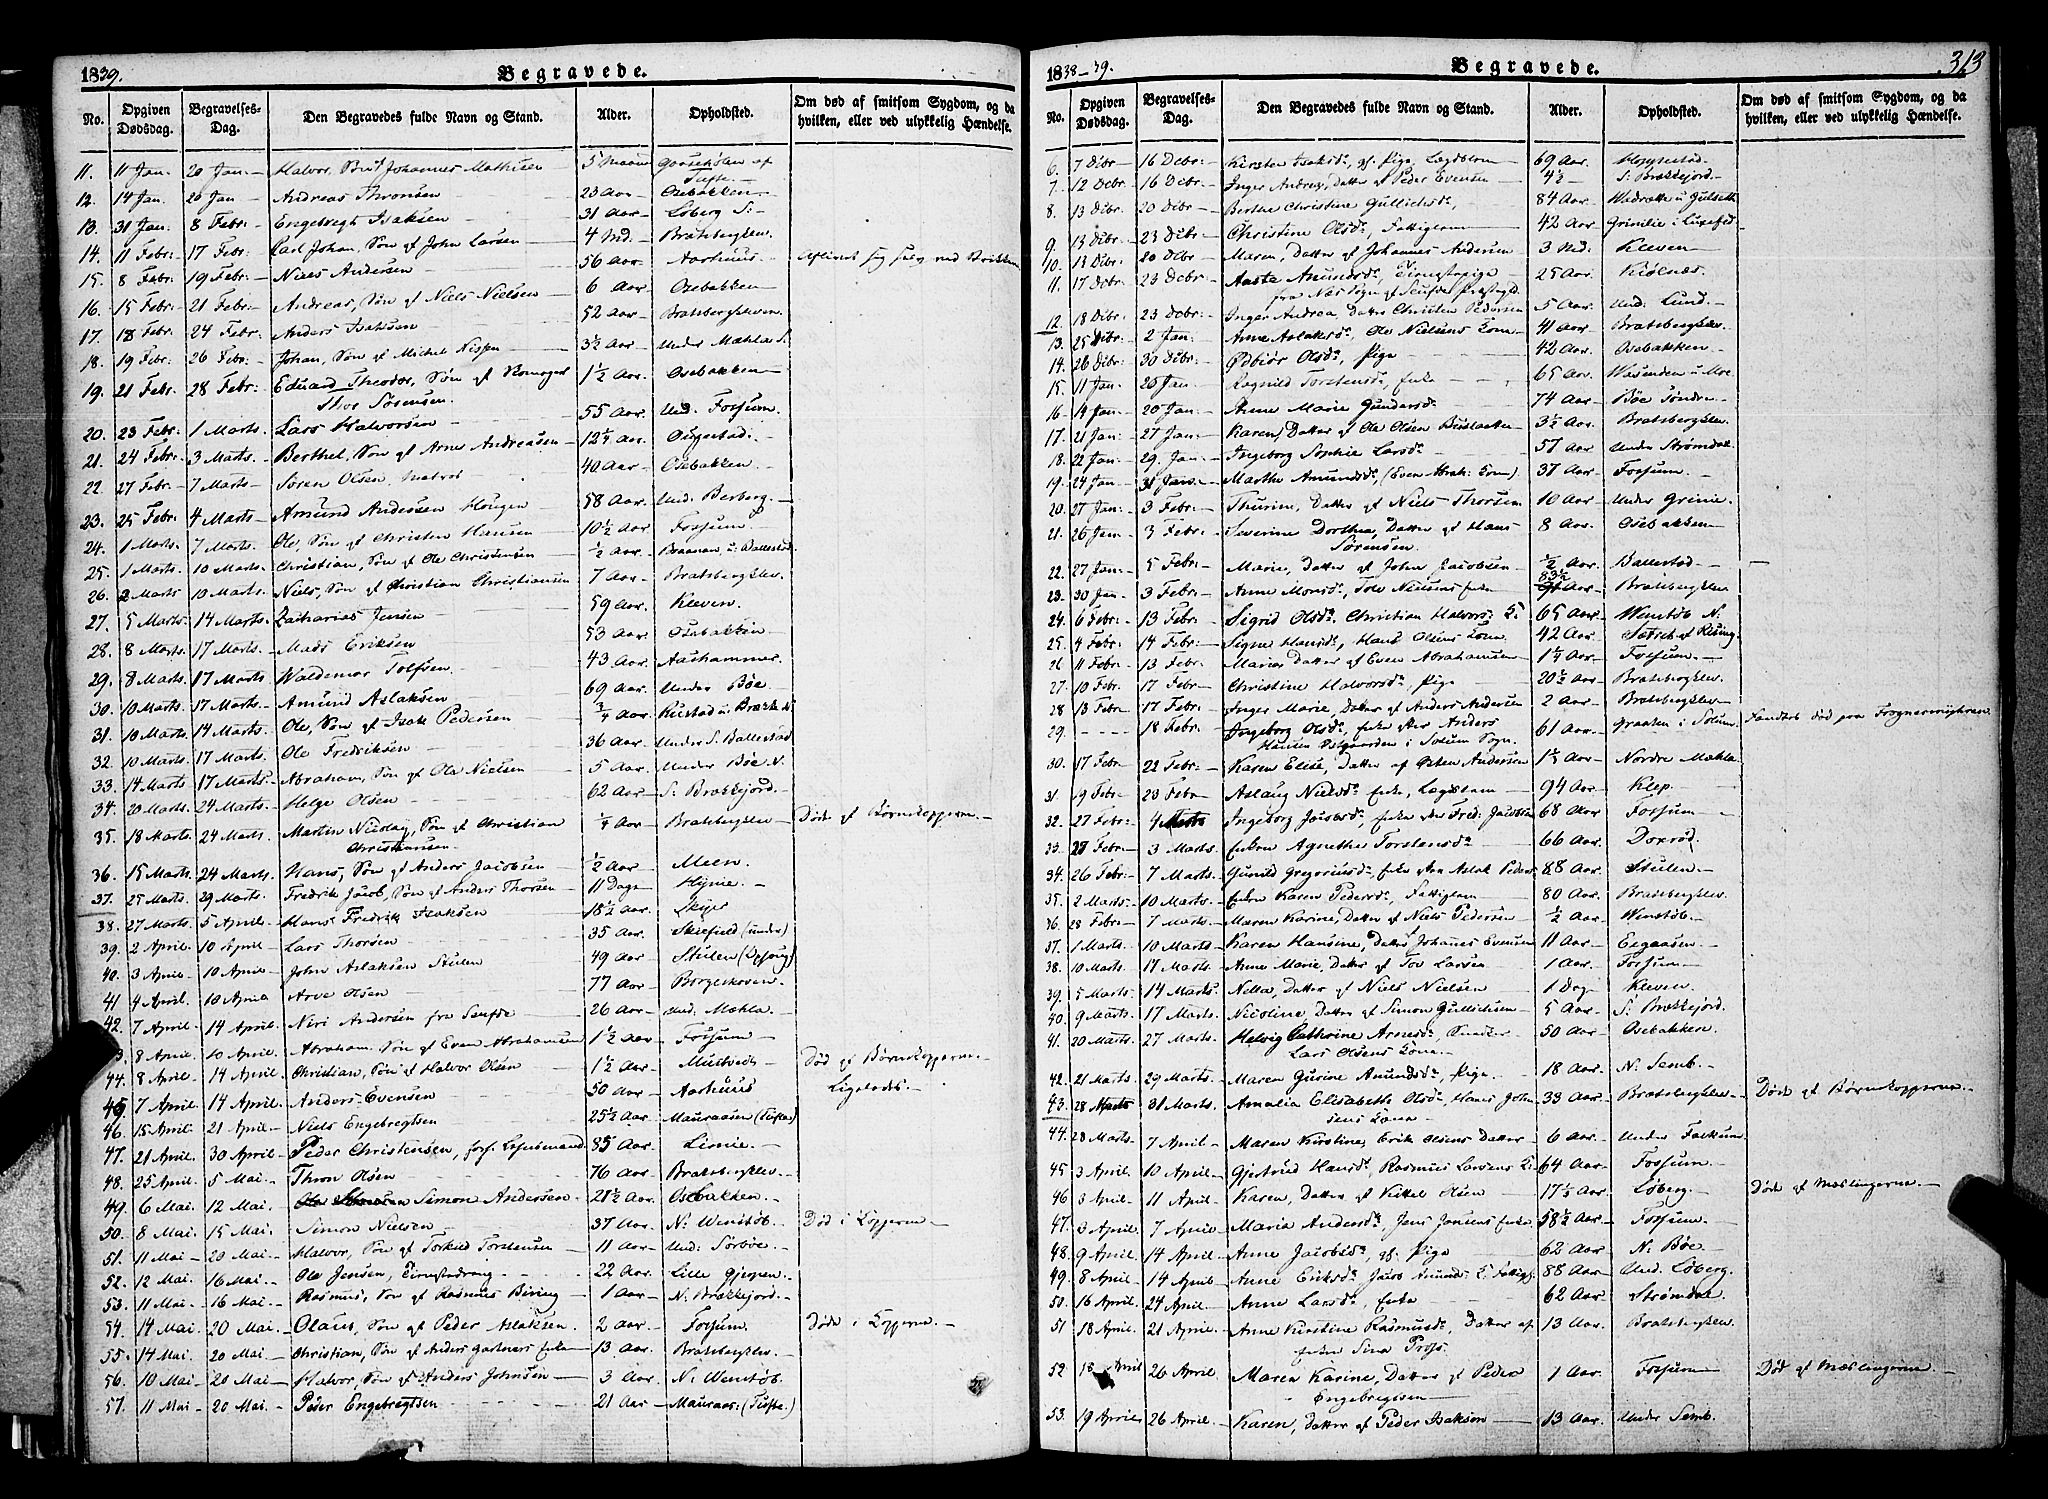 1839.
Begravede.
No. Opgiven Dødsdag. Begravelses-Dag. Den Begravedes fulde Navn og Stand. Alder. Opholdsted. Om død af smitsom Sygdom, og da hvilken, eller ved ulykkelig Hændelse.
11. 11 Jan. 20 Jan. Halvor, Søn af Johannes Mathisen 5 Maan af Tufte.
12. 14 Jan. 20 Jan Andreas Thronsen 23 Aar Osebakken
13. 31 Jan. 8 Febr. Engebregt Isaksen 31 Aar Løberg S:
14. 11 Febr: 17 Febr. Carl Johan, Søn af John Larsen 4 Md. Bratsbergklev.
15. 8 Febr. 19 Febr. Niels Andersen 56 Aar Aarhuus Aflivet sig selv ved
16. 15 Febr. 21 Febr. Andreas, Søn af Niels Nielsen 6 Aar Osebakken
17. 18 Febr. 24 Febr. Anders Isaksen 52 Aar Bratsbergkleven.
18. 19 Febr: 26 Febr. Johan, Søn af Michel Nissen 3½ Aar Under Mæhla S.
19. 21 Febr. 28 Febr: Eduard Theodor, Søn af Thor Sørensen. 1½ Aar. Osebakken
20. 23 Febr. 1 Marts. Lars Halvorsen 55 Aar. Und. Fossum.
21. 24 Febr: 3 Marts. Berthel, Søn af Arne Andreasen 12¼ Aar. Ougestad.
22. 27 Febr. 7 Marts Søren Olsen, Matros 40 Aar Osebakken.
23. 25 Febr: 4 Marts Amund Andersen Hougen 58 Aar. Und. Berberg.
24. 1 Marts. 7 Marts. Ole, Søn af Christen Hansen 10½ Aar Fossum
25. 1 Marts. 10 Marts. Christian, Søn af Ole Christensen ½ Aar. u: Ballestad
26. 2 Marts 10 Marts. Niels, Søn af Christian Christiansen 7 Aar Bratsbergklev.
27. 5 Marts. 14 Marts. Zacharias Jensen 59 Aar. Kleven.
28. 8 Marts. 17 Marts. Mads Eriksen 53 Aar. Osebakken
29. 8 Marts. 17 Marts Waldemar Tolfsen 43 Aar. Aashammer.
30. 10 Marts. 17 Marts. Amund Aslaksen 69 Aar. Under Bøe.
31. 10 Marts. 14 Marts. Ole, Søn af Isak Pedersen ¾ Aar. Rustad u:
32. 10 Marts. 17 Marts. Ole Fredriksen 36 Aar. Under S. Ballestad
33. 14 Marts 17 Marts. Abraham, Søn af Ole Nielsen 5 Aar. Under Bøe N.
34. 20 Marts. 24 Marts. Helge Olsen 62 Aar. S: Brækkejord.
35. 18 Marts. 24 Marts. Martin Nicolay, Søn af Christian Christiansen ¼ Aar. Bratsbergklev Døde af Børnekopperne.
36. 15 Marts. 24 Marts. Hans, Søn af Anders Jacobsen ½ Aar Meen.
37. 25 Marts. 29 Marts. Fredrik Jacob, Søn af Anders Thorsen 11 Dage Hynie.
38. 27 Marts. 5 April. Hans Fredrik Isaksen 18½ Aar.
39. 2 April. 10 April Lars Thorsen 35 Aar. (under)
40. 3 April. 10 April. John Aslaksen Stulen 49 Aar. Stulen
41. 4 April. 10 April Arve Olsen 77 Aar Borgeskoven.
42. 7 April. 14 April. Niri Andersen fra 26 Aar. Und. Mæhla.
43. 8 April. 10 April. Abraham, Søn af Even Abrahamsen 1½ Aar Fossum
44. 8 April. 14 April. Christian, Søn af Halvor Olsen 1½ Aar. Mustvedt Død af Børnekopperne.
45. 7 April. 14 April. Anders Evensen 50 Aar. Aarhuus Ligeledes.
46. 15 April. 21 April. Niels Engebregtsen 25½ Aar. (Tufte)
47. 21 April. 30 April. Peder Christensen, 85 Aar. Limie.
48. 25 April. 5 Mai. Thron Olsen 76 Aar. Bratsbergklev.
49. 6 Mai. 12 Mai. Simon Andersen 21½ Aar. Osebakken.
50. 8 Mai. 15 Mai. Simon Nielsen 37 Aar. N: Wenstøb. Død i Kopperne
51. 11 Mai 20 Mai. Halvor, Søn af Torkild Torstensen 11 Aar. Und: Sørbøe.
52. 12 Mai. 16 Mai. Ole Jensen, Tienestedreng 22 Aar. Lille Gjerpen.
53. 11 Mai 16 Mai. Rasmus, Søn af Rasmus Biring 1 Aar. N. Brækkejord.
54. 14 Mai 20 Mai. Olaus, Søn af Peder Aslaksen. 2 Aar. Fossum. Døde i Kopperne.
55. 14 Mai. 20 Mai. Christian, Søn af Anders Gartners Enke 13 Aar. Bratsbergklev.
56. 10 Mai 20 Mai. Halvor, Søn af Anders Johnsen 3 Aar N: Wenstøb
57. 11 Mai 20 Mai. Peder Engebregtsen 21 Aar (Tufte.)
1838-39.
Begravede.
313
No. Opgiven Dødsdag. Begravelses-Dag. Den Begravedes fulde Navn og Stand. Alder. Opholdsted. Om død af smitsom Sygdom, og da hvilken, eller ved ulykkelig Hændelse.
6. 7 Dcbr 16 Debr: Kirsten Isaksdr, gl. Pige, Lægdslem 69 Aar.
7. 12 Debr 16 Debr. Inger Andrea, Datter af Peder Evensen 4½ S. Brækkejord.
8. 13 Dcbr. 20 Dcbr Berthe Christine Gullichsdr 84 Aar
9. 13 Dcbr. 23 Dcbr. Christine Olsdr, Fattiglem 42 Aar
10. 13 Dcbr. 20 Dcbr Maren, Datter af Johannes Andersen 3 Md. Kleven
11. 17 Dcbr. 23 Dcbr. Aaste Amundsdr, Tienestepige fra Næs Sogn 25 Aar
12. 18 Dcbr. 23 Dcbr. Inger Andrea, Datter Christen Pedersen 5 Aar. Und. Lund.
13. 25 Dcbr. 2 Jan: Anne Aslaksdr, Ole Nielsens Kone 41 Aar Bratsbergklev.
14. 26 Dcbr. 30 Dcbr. Olsdr, Pige 42 Aar. Osebakken
15. 11 Jan. 20 Jan. Ragnild Torstensdr, Enke 65 Aar.
16. 14 Jan. 20 Jan. Anne Marie Gundersdr 74 Aar Bøe Søndre
17. 21 Jan. 27 Jan. Karen, Datter af Ole Olsen 3½ Aar Bratsbergklev.
18. 22 Jan. 29 Jan. Ingeborg Sophie Larsdr 57 Aar Under Strømdal
19. 24 Jan. 31 Jan. Marthe Amundsdr, (Even Abrah: Kone) 37 Aar Fossum.
20. 27 Jan. 3 Febr. Thurine, Datter af Niels Thorsen 10 Aar Under Grinie.
21. 26 Jan. 3 Febr. Severine Dorthea, Datter af Hans Sørensen. 8 Aar. Osebakken
22. 27 Jan 5 Febr. Marie, Datter af John Jacobsen ½ Aar. Ballestad
23. 30 Jan. 3 Febr. Anne Monsdr, Tolv Nielsens Enke 83½ Aar Bratsbergklev.
24. 6 Febr. 13 Febr. Sigrid Olsdr. Christian Halvors: K: 65 Aar. Wenstøb N.
25. 4 Febr. 14 Febr. Signe Hansdr, Hans Olsens Kone 42 Aar af Rising.
26 11 Febr. 13 Febr. Maria Datter af Even Abrahamsen 1¼ Aar Fossum.
27. 10 Febr. 17 Febr Christine Halvorsdr, Pige 20½ Aar Bratsbergklev.
28 13 Febr 17 Febr. Inger Marie, Datter af Anders Andersen 2 Aar Bratsbergklev
29. 18 Febr. Ingeborg Olsdr, Enke efter Anders Hansen i Solum Sogn. 61 Aar Graaten i Solum. Fandtes død paa
30. 17 Febr 22 Febr. Karen Elise, Datter af Østen Andersen Aar Nordre Mæhla
31. 19 Febr. 23 Febr Aslaug Nielsdr Enke, Lægdslem 94 Aar Klep.
32. 27 Febr. 4 Marts Ingeborg Jacobsdr, Enke efter Fred: Jacobsen 68 Aar Fossum
33. 27 Febr. 3 Marts. Enken Agnethe Torstensdr 66 Aar
34. 26 Febr. 7 Marts. Gunild Gregoriusdr Enke efter Aslak Peders 88 Aar Stulen
35. 2 Marts. 10 Marts. Enken Karen Pedersdr, Fattiglem 80 Aar. Bratsbergklev
36. 28 Febr. 7 Marts. Maren Karine, Datter af Niels Pedersen ½ Aar Wenstøb.
37. 1 Marts. 10 Marts. Karen Hansine, Datter Johanes Evensen 11 Aar
38. 10 Marts. 17 Marts. Anne Marie, Datter af Tov Larsen 1 Aar. Fossum.
39. 5 Marts. 14 Marts. Nella, Datter af Niels Nielsen 1 Dag Kleven
40. 9 Marts. 17 Marts. Nicoline, Datter af Simon Gullichsen 5 Aar S. Brækkejord.
41. 20 Marts 27 Marts. Helvig Cathrine Arnesdr, Lars Olsens Kone 50 Aar Osebakken.
42. 21 Marts. 29 Marts. Maren Gurine Amundsdr, Pige 18 Aar N. Semb.
43. 28 Marts 31 Marts. Amalia Elisabeth Olsdr, Hans Johnsens Kone 33 Aar. Bratsbergklev Døde af Børnekopperne.
44. 28 Marts. 7 April. Maren Kirstine, Erik Olsens Datter 6 Aar Under Falkum
45 3 April. 10 April. Gjertrud Hansdr, Rasmus Larsens K: 64 Aar Fossum.
46 3 April. 11 April. Karen, Datter af Kittel Olsen Aar. Løberg. Døde af Mæslingerne.
47. 3 April. 7 April Maria Andersdr, Jens Jensens Enke 58½ Aar. Fossum.
48. 9 April. 14 April. Anne Jacobsdr, gl. Pige 62 Aar. N. Bøe.
49. 8 April. 14 April. Anne Eriksdr, Jacob Amunds: E: Fattigl: 88 Aar. Und. Løberg.
50. 16 April. 24 April. Anne Larsdr, Enke 62 Aar Strømdal
51. 18 April. 21 April. Anne Kirstine Rasmusdr, Datter af Enken Sina 13 Aar. Bratsbergklev
52. 18 April 26 April. Maren Karine, Datter af Peder Engebregtsen 1 Aar Fossum Død af Mæslingerne.
53. 19 April 26 April. Karen, Datter af Peder Isaksen 13 Aar. Under Semb.